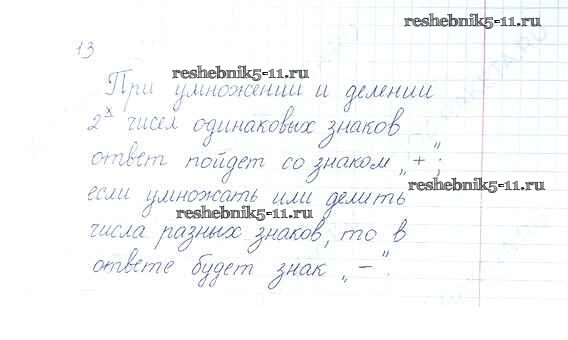 reshebnik5-11.ru
13
reshebnik5-11.ru
При умножении и делении
2х чисел одинаковых знаков
ответ пойдет со знаком „+";
reshebnik5-11.ru
если умножать или делить
reshebnik5-11.ru
числа разных знаков, то в
ответе будет знак „—".
reshebnik5-11.ru